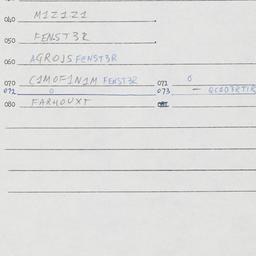 040 M1Z1Z1
050 FENST3R
060 AGROJS FENST3R
070 C1M0F1N1M FENST3R 071 0
072 0 073 —
080 FARHOUXT